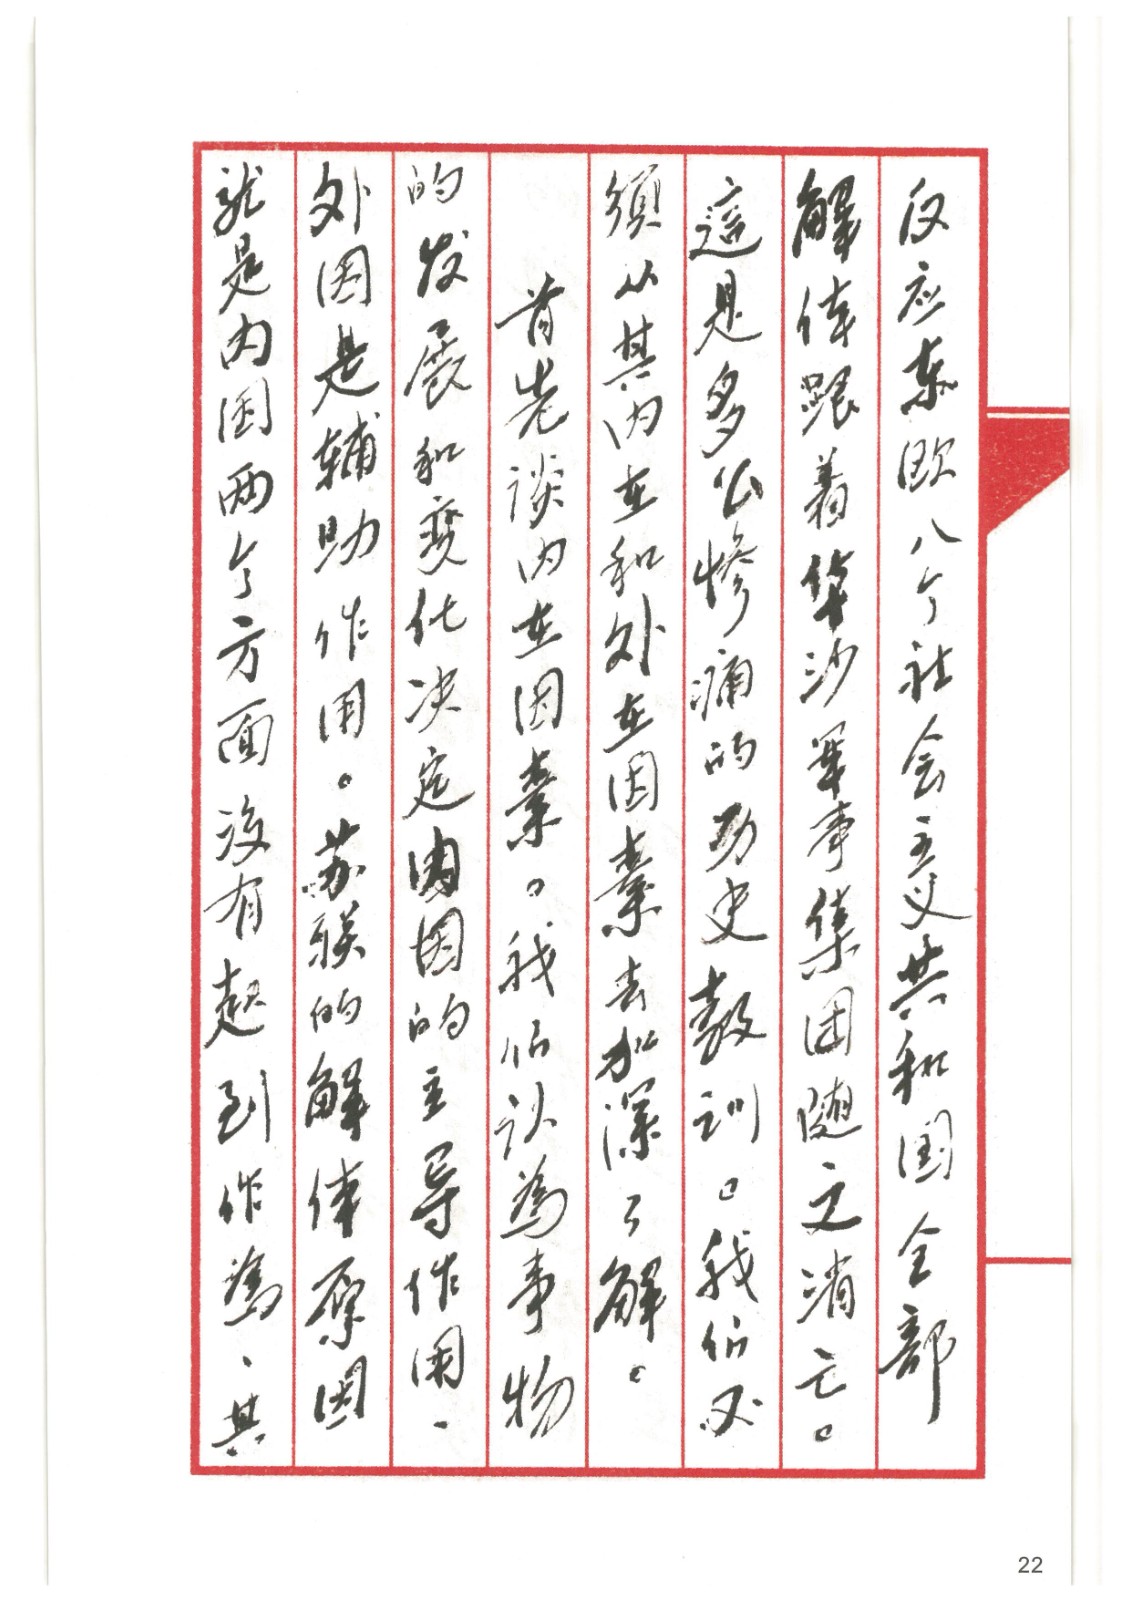 反应东欧八个社会主义共和国全部
解体跟着华沙军事集团随之消亡。
這是多么惨痛的历史教训。我们必
须从其内在和外在因素去加深了解。
首先谈内在因素。我们认為事物
的发展和变化决定内因的主导作用、
外因是辅助作用。苏联的解体原因
就是内因两个方面没有起到作為、其
22